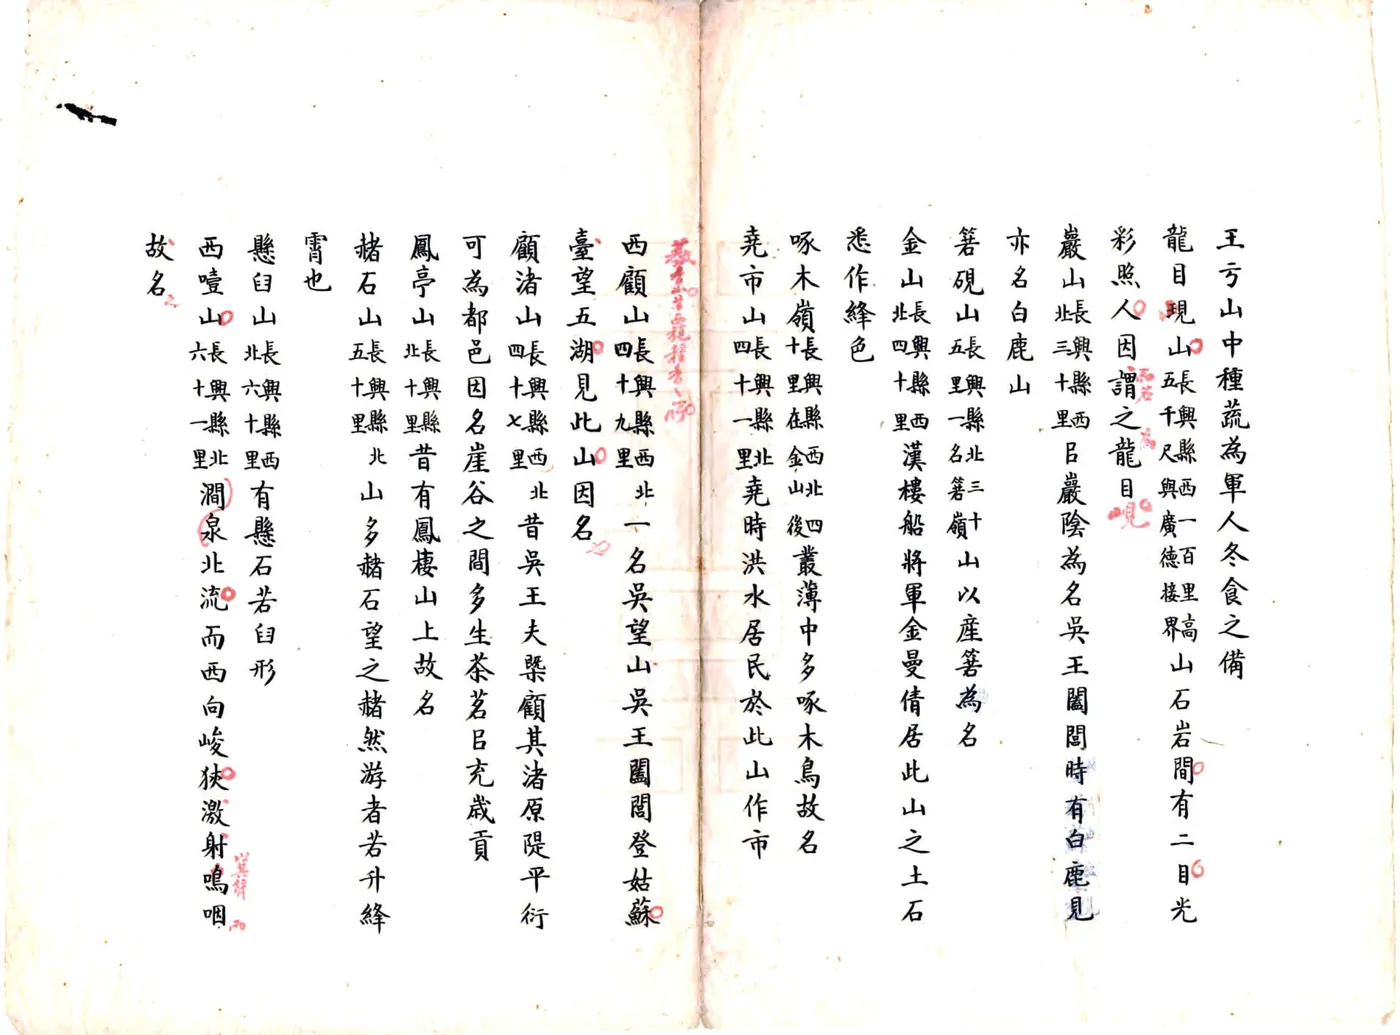 王亏山中種蔬為軍人冬食之備
龍目現山長興縣西一百里高五千尺與廣德接界山石岩間有二目光
彩照人因謂之龍目
巖山長興縣西北三十里㠯巖陰為名吳王闔閭時有白鹿見
亦名白鹿山
箬硯山長興縣北三十五里一名箬嶺山以產箬為名
金山長興縣西北四十里漢樓船將軍金曼倩居此山之土石
悉作絳色
啄木嶺長興縣西北四十里在金山後叢薄中多啄木鳥故名
堯市山長興縣北四十一里堯時洪水居民於此山作市
西顧山長興縣西北四十九里一名吳望山吳王闔閭登姑蘇
臺望五湖見此山因名
顧渚山長興縣西北四十七里昔吳王夫槩顧其渚原隄平衍
可為都邑因名崖谷之間多生茶茗㠯充歲貢
鳳亭山長興縣北十里昔有鳳棲山上故名
赭石山長興縣北五十里山多赭石望之赭然游者若升絳
霄也
懸臼山長興縣西北六十里有懸石若臼形
西噎山長興縣北六十一里澗泉北流而西向峻狹激射鳴咽
故名